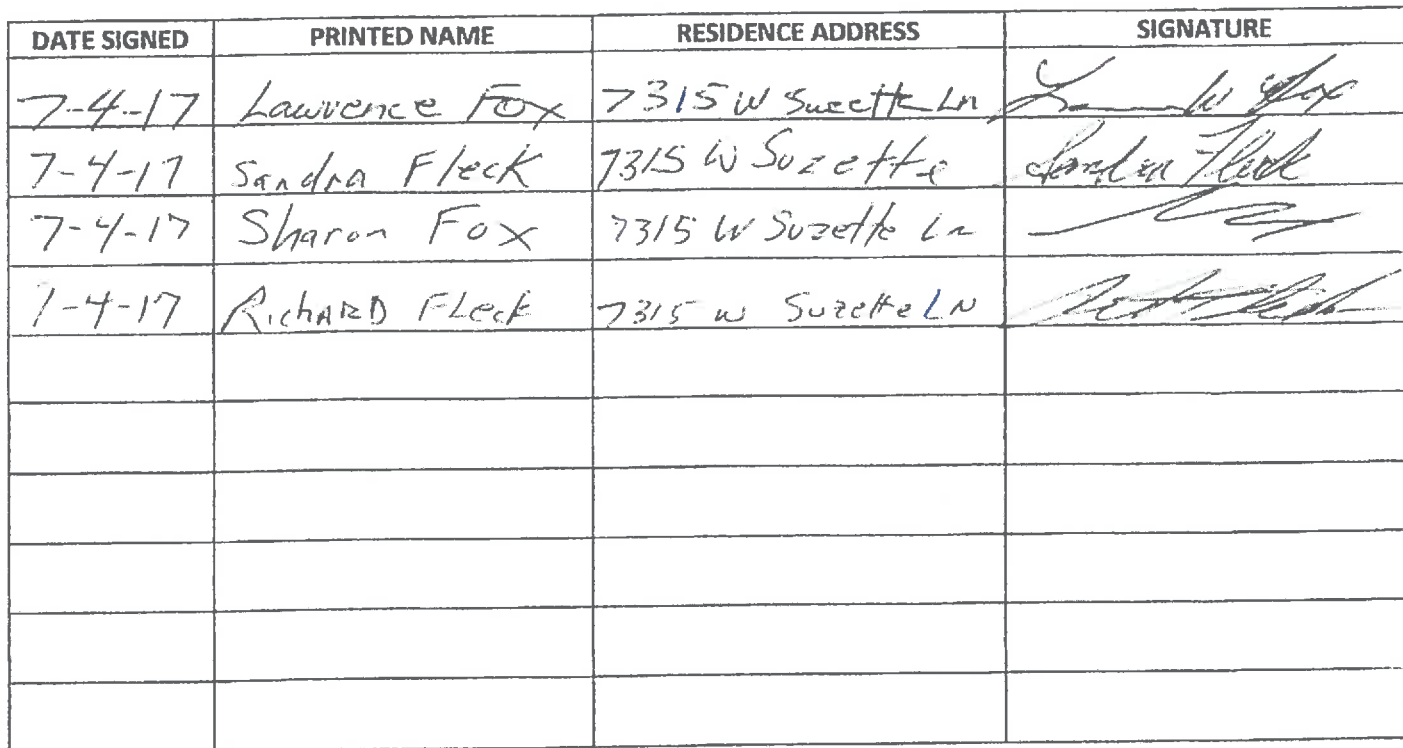 DATE SIGNED PRINTED NAME RESIDENCE ADDRESS SIGNATURE
7-4-17 Lawrence Fox 7315 W Suzette Ln Fox
7-4-17 Sandra Fleck 7315 W Suzette Sandra Fleck
7-4-17 Sharon Fox 7315 W Suzette Ln
7-4-17 RichARD FLeck 7315 W Suzette LN